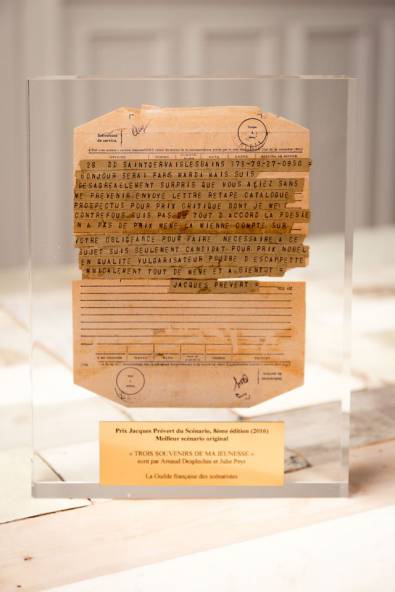 Indications de service.
28 DD SAINTGERVAISLESBAINS 173-79-27-0950 =
BONJOUR SERAI PARIS MARDI MAIS SUIS
DESAGREABLEMENT SURPRIS QUE VOUS AYIEZ SANS
ME PREVENIR ENVOYE LETTRE RETAPE CATALOGUE
PROSPECTUS POUR PRIX CRITIQUE DONT JE ME
CONTREFOUS SUIS PAS TOUT D'ACCORD LA POESIE
N A PAS DE PRIX MEME LA MIENNE COMPTE SUR
VOTRE OBLIGEANCE POUR FAIRE NECESSAIRE A CE
SUJET SUIS SEULEMENT CANDIDAT POUR PRIX NOBEL
EN QUALITE VULGARISATEUR POUDRE D ESCAMPETTE
AMICALEMENT TOUT DE MEME ET A BIENTOT =
JACQUES PREVERT =
Prix Jacques Prévert du Scénario, 8ème édition (2016)
Meilleur scénario original
« TROIS SOUVENIRS DE MA JEUNESSE »
écrit par Arnaud Desplechin et Julie Peyr
La Guilde française des scénaristes